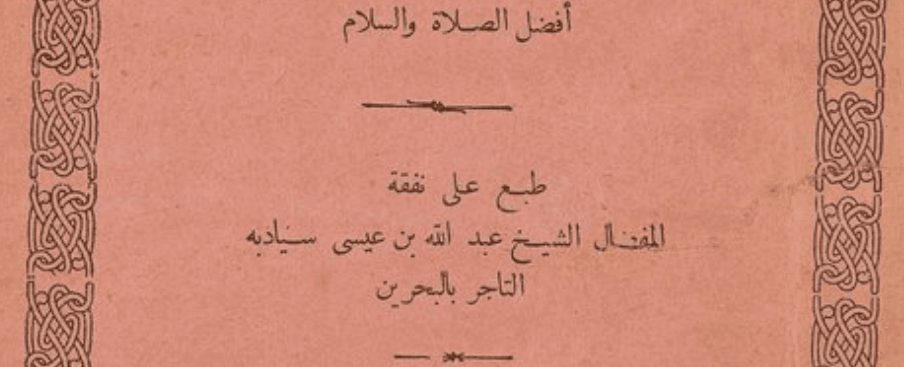 أفضل الصلاة والسلام
طبع على نفقة
المفضال الشيخ عبد الله بن عيسى سنيادبه
التاجر بالبحرين